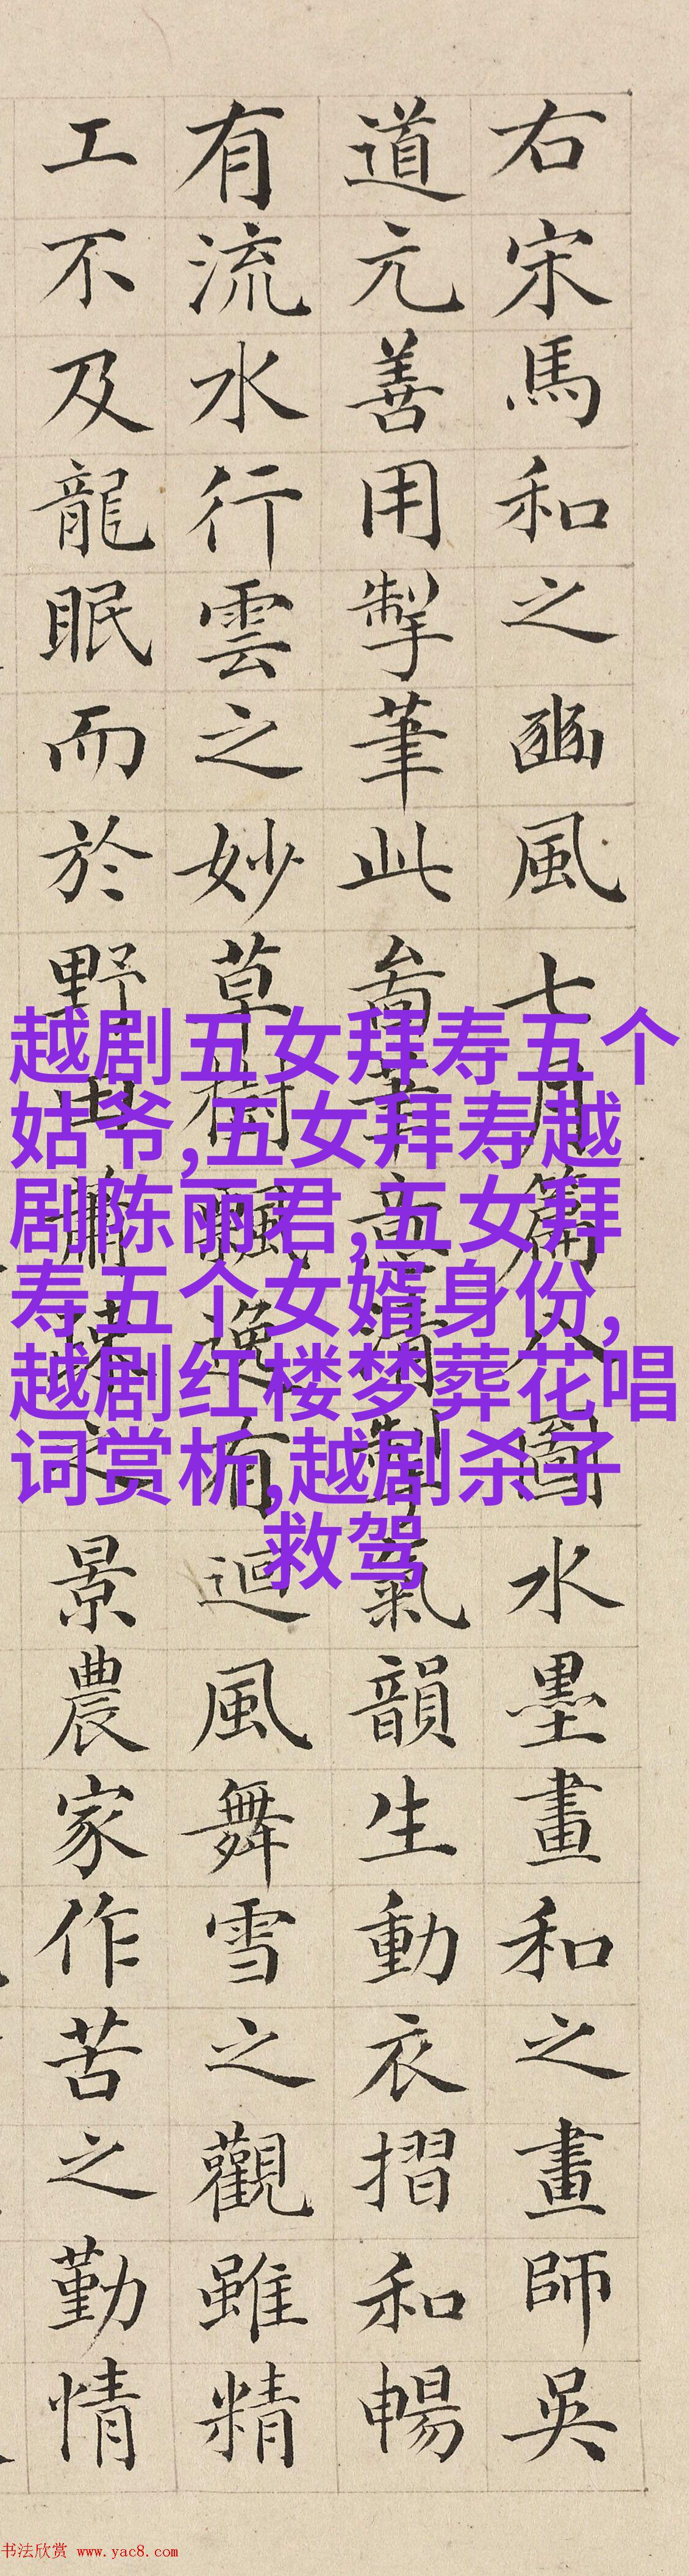 右宋馬和之豳風七月篇八圖水墨畫和之畫師吳
道元善用掣筆此啚筆意清氣韻生動衣摺和暢
有流水行雲之妙草樹飄逸有迴風舞雪之觀雖精
工不及龍眠而於野田蕭之景農家作苦之勤情
越剧五女拜寿五个
姑爷,五女拜寿越
剧陈丽君,五女拜
寿五个女婿身份,
越剧红楼梦葬花唱
词赏析,越剧杀子
救驾
书法欣赏 www.yac8.com